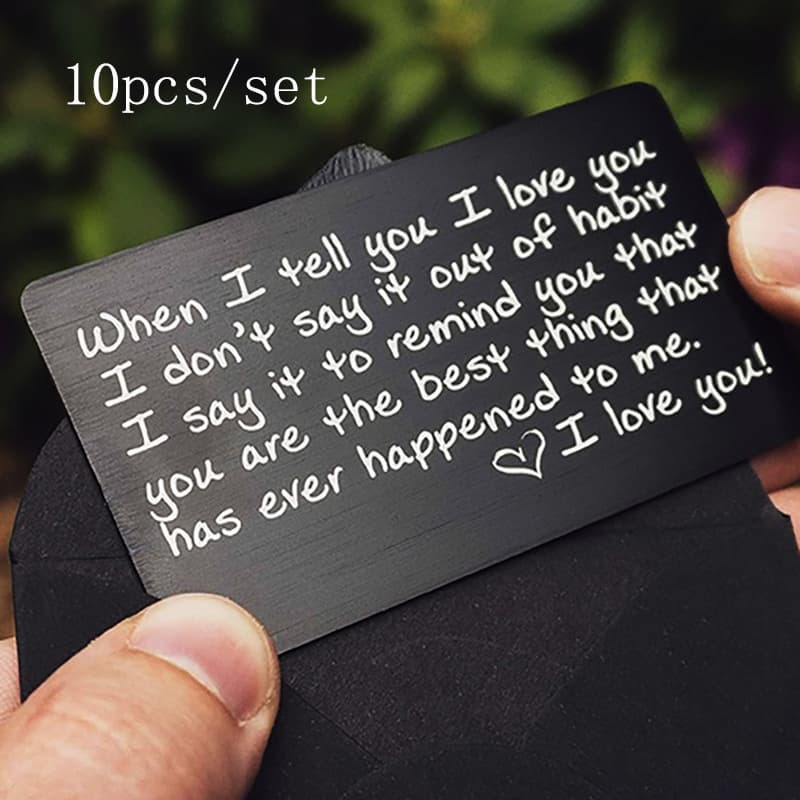 10pcs/set
When I tell you I love you
I don't say it out of habit
I say it to remind you that
you are the best thing that
has ever happened to me.
♡ I love you!